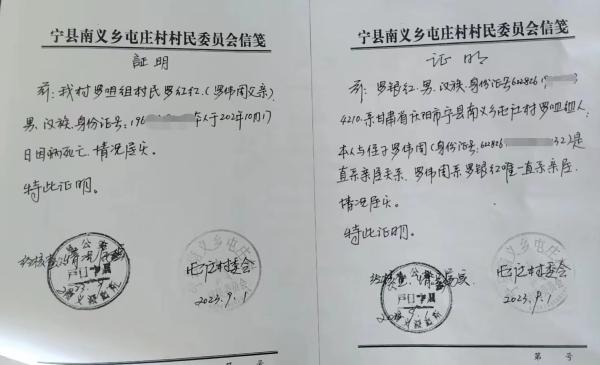 宁县南义乡屯庄村村民委员会信笺
証明
兹:我村罗咀组村民罗红红,(罗伟周父亲)
男、汉族、身份证号:196 于2021年10月17
日因病死亡、情况属实。
特此证明。
经核查,情况属实
户口专用
屯庄村委会
2023.9.1
宁县南义乡屯庄村村民委员会信笺
证明
兹:罗银红、男、汉族、身份证号622826
4210.系甘肃省庆阳市宁县南义乡屯庄村罗咀组人,
本人与侄子罗伟周(身份证号:622826 32)是
直系亲属关系、罗伟周系罗银红唯一直系亲属、
情况属实。
特此证明。
经核查,情况属实
户口专用
屯庄村委会
2023.9.1
第 号
第 号